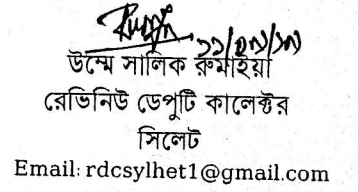 উম্মে সালিক রুমাইয়া
রেভিনিউ ডেপুটি কালেক্টর
সিলেট
Email: rdcsylhet1@gmail.com